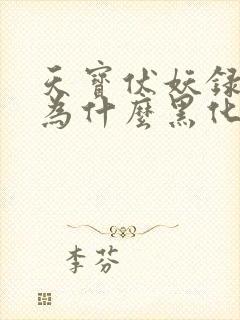 天寶伏妖録
為什麼黑化
李芬